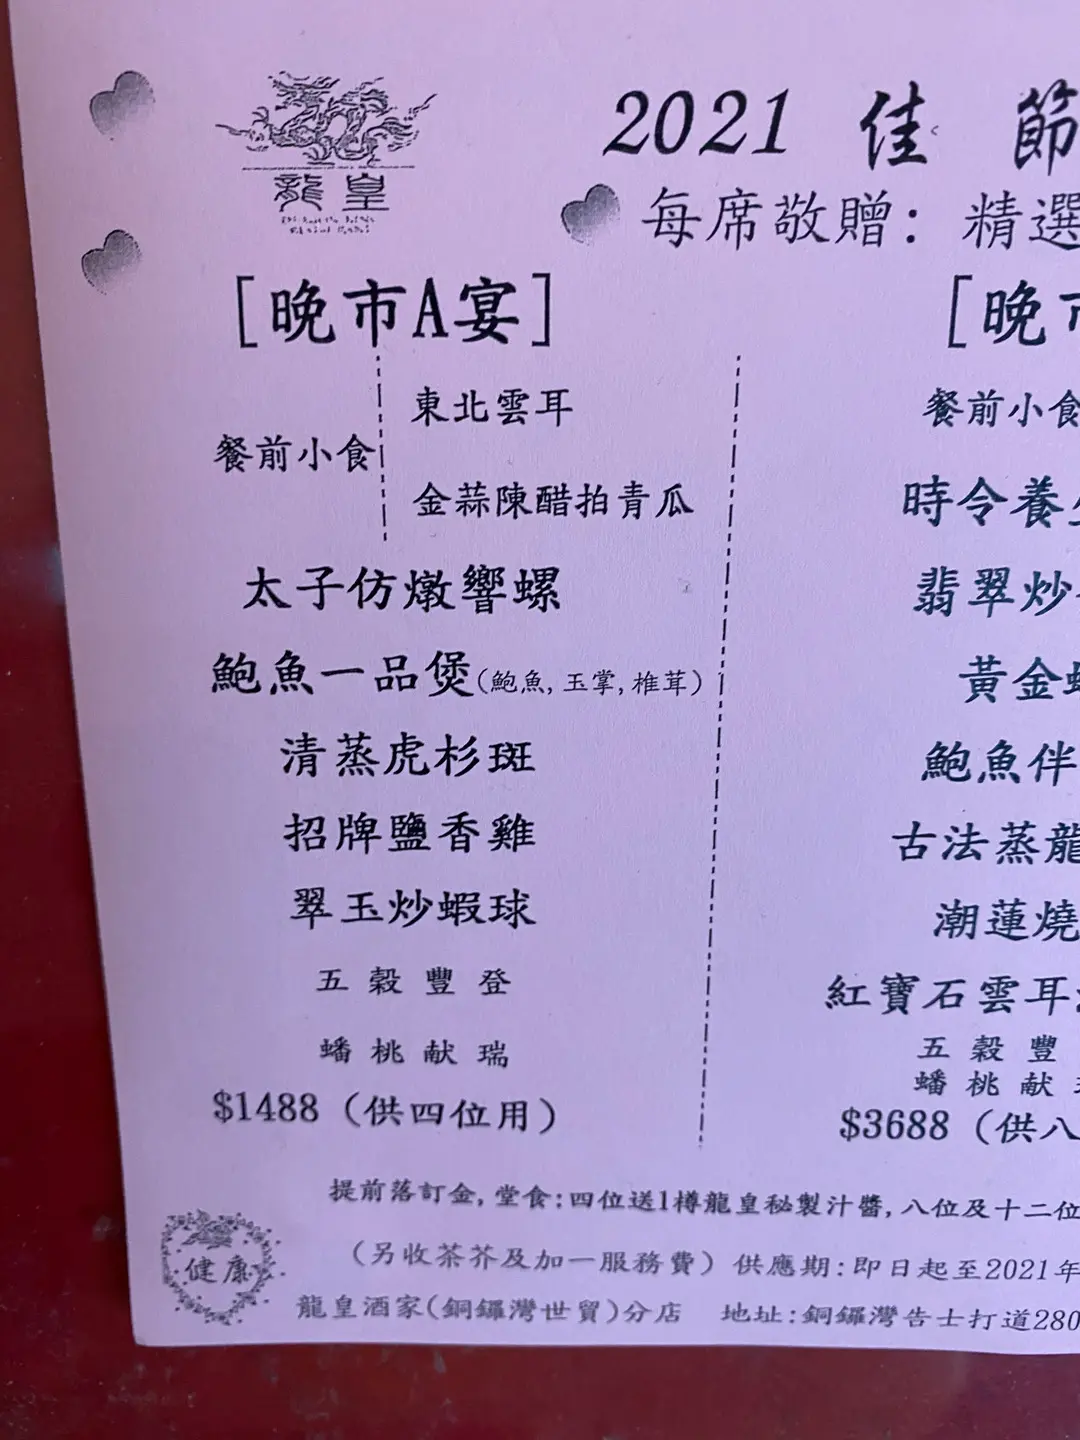 龍皇
2021 佳 節
每席敬贈: 精選
[晚市A宴]
餐前小食
東北雲耳
金蒜陳醋拍青瓜
太子仿燉響螺
鮑魚一品煲(鮑魚,玉掌,椎茸)
清蒸虎杉斑
招牌鹽香雞
翠玉炒蝦球
五穀豐登
蟠桃献瑞
$1488 (供四位用)
[晚市
餐前小食
時令養生
翡翠炒
黃金
鮑魚伴
古法蒸龍
潮蓮燒
紅寶石雲耳
五穀豐
蟠桃献
$3688 (供八
提前落訂金,堂食:四位送1樽龍皇秘製汁醬,八位及十二位
(另收茶芥及加一服務費) 供應期:即日起至2021年
龍皇酒家(銅鑼灣世貿)分店 地址:銅鑼灣告士打道280
健康